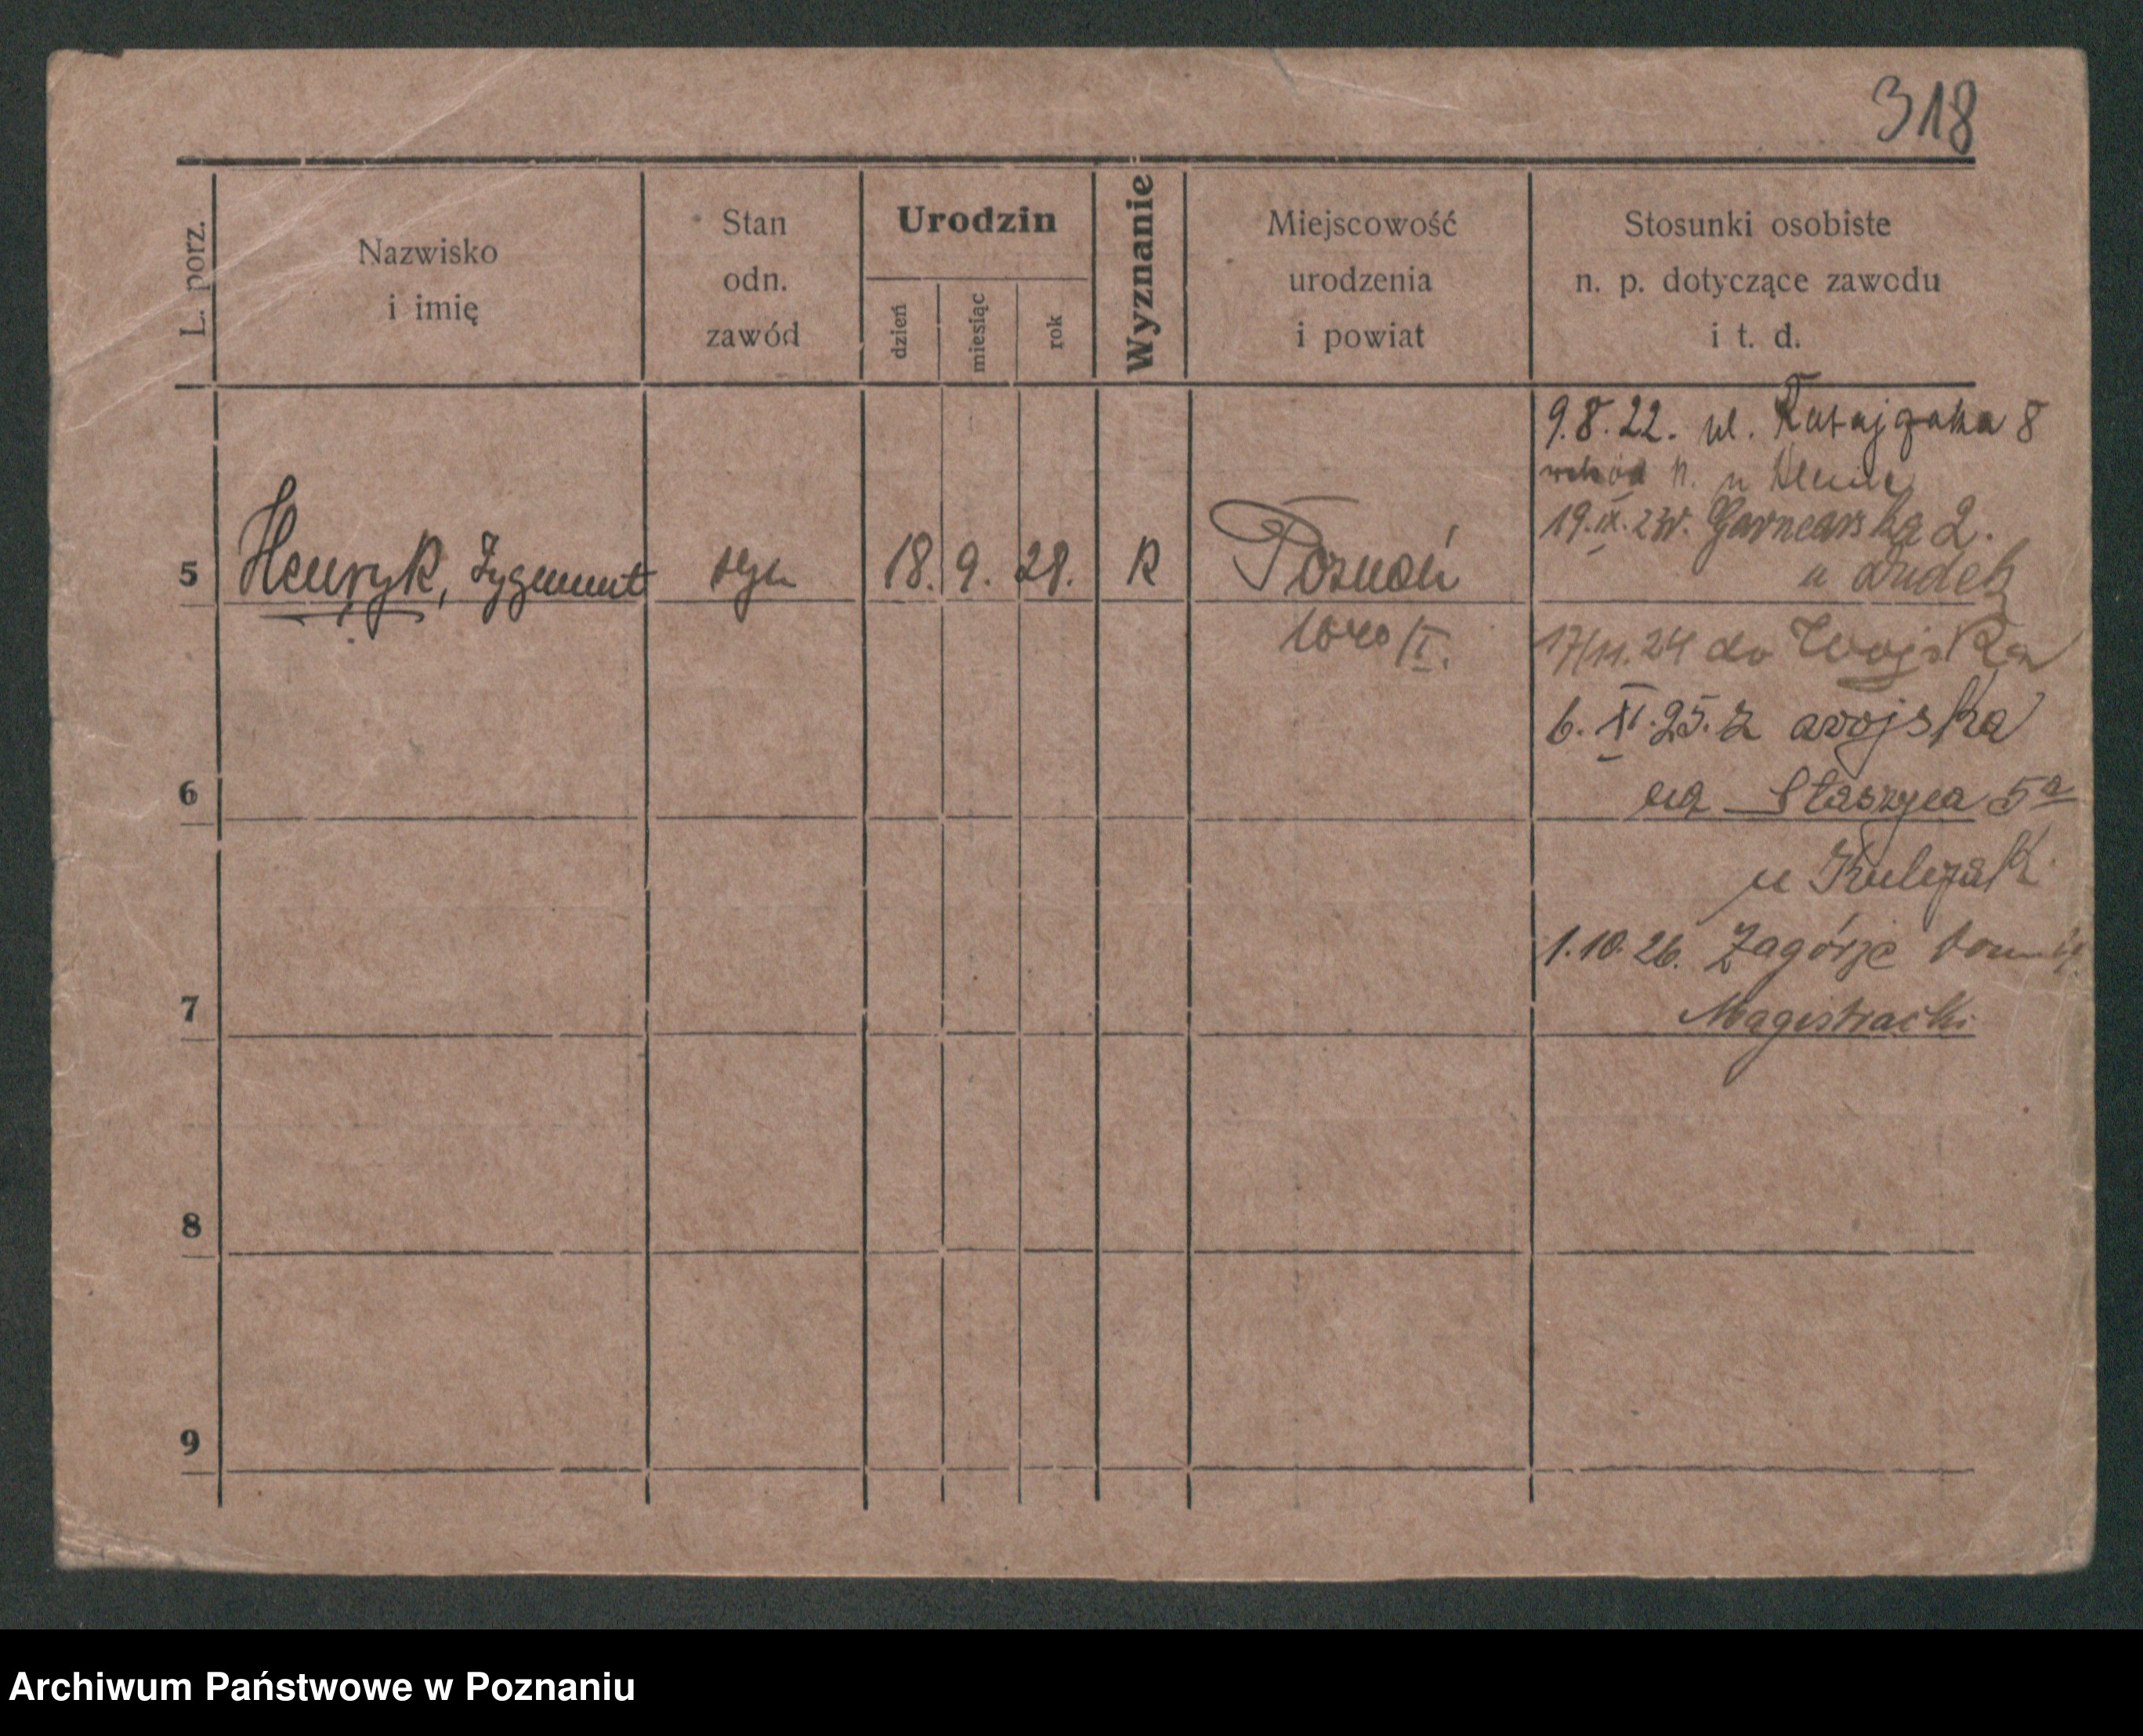 318
L. porz.
Nazwisko
i imię
Stan
odn.
zawód
Urodzin
dzień
miesiąc
rok
Wyznanie
Miejscowość
urodzenia
i powiat
Stosunki osobiste
n. p. dotyczące zawodu
i t. d.
9.8.22. ul. Ratajczaka 8
19.IX.23r. Garncarska 2.
u Dudek
5 Henryk, Zygmunt syn 18. 9. 28. R Poznań
17/11.24 do Wojska
6. XI.25. z wojska
6
na Staszyca 5a
u Kulczak
1.10.26. Zagórze
Magistracki
7
8
9
Archiwum Państwowe w Poznaniu